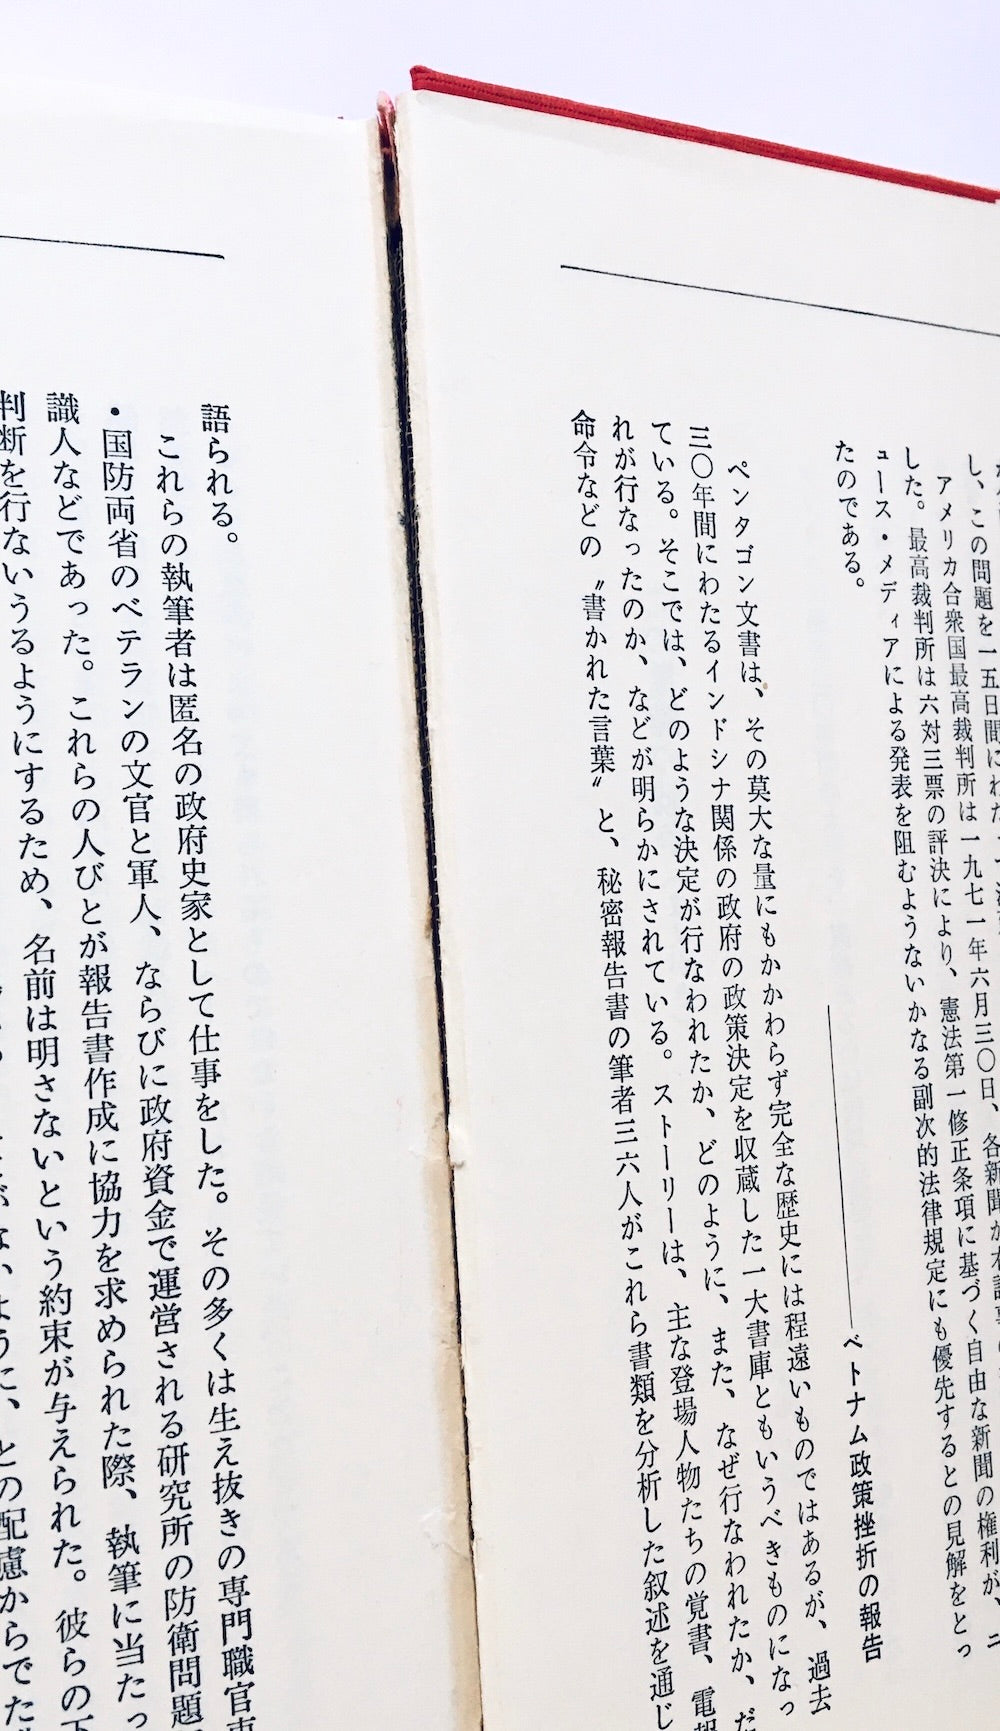 し、この問題を一五日間にわた
アメリカ合衆国最高裁判所は一九七一年六月三〇日、各新聞が
した。最高裁判所は六対三票の評決により、憲法第一修正条項に基づく自由な新聞の権利が、ニ
ュース・メディアによる発表を阻むようないかなる副次的法律規定にも優先するとの見解をとっ
たのである。
――ベトナム政策挫折の報告
ペンタゴン文書は、その莫大な量にもかかわらず完全な歴史には程遠いものではあるが、過去
三〇年間にわたるインドシナ関係の政府の政策決定を収蔵した一大書庫ともいうべきものになっ
ている。そこでは、どのような決定が行なわれたか、どのように、また、なぜ行なわれたか、だ
れが行なったのか、などが明らかにされている。ストーリーは、主な登場人物たちの覚書、電報
命令などの〝書かれた言葉〟と、秘密報告書の筆者三六人がこれら書類を分析した叙述を通じ
語られる。
これらの執筆者は匿名の政府史家として仕事をした。その多くは生え抜きの専門職官
・国防両省のベテランの文官と軍人、ならびに政府資金で運営される研究所の防衛問題
識人などであった。これらの人びとが報告書作成に協力を求められた際、執筆に当たっ
判断を行ないうるようにするため、名前は明さないという約束が与えられた。彼らの
ように、との配慮からでた